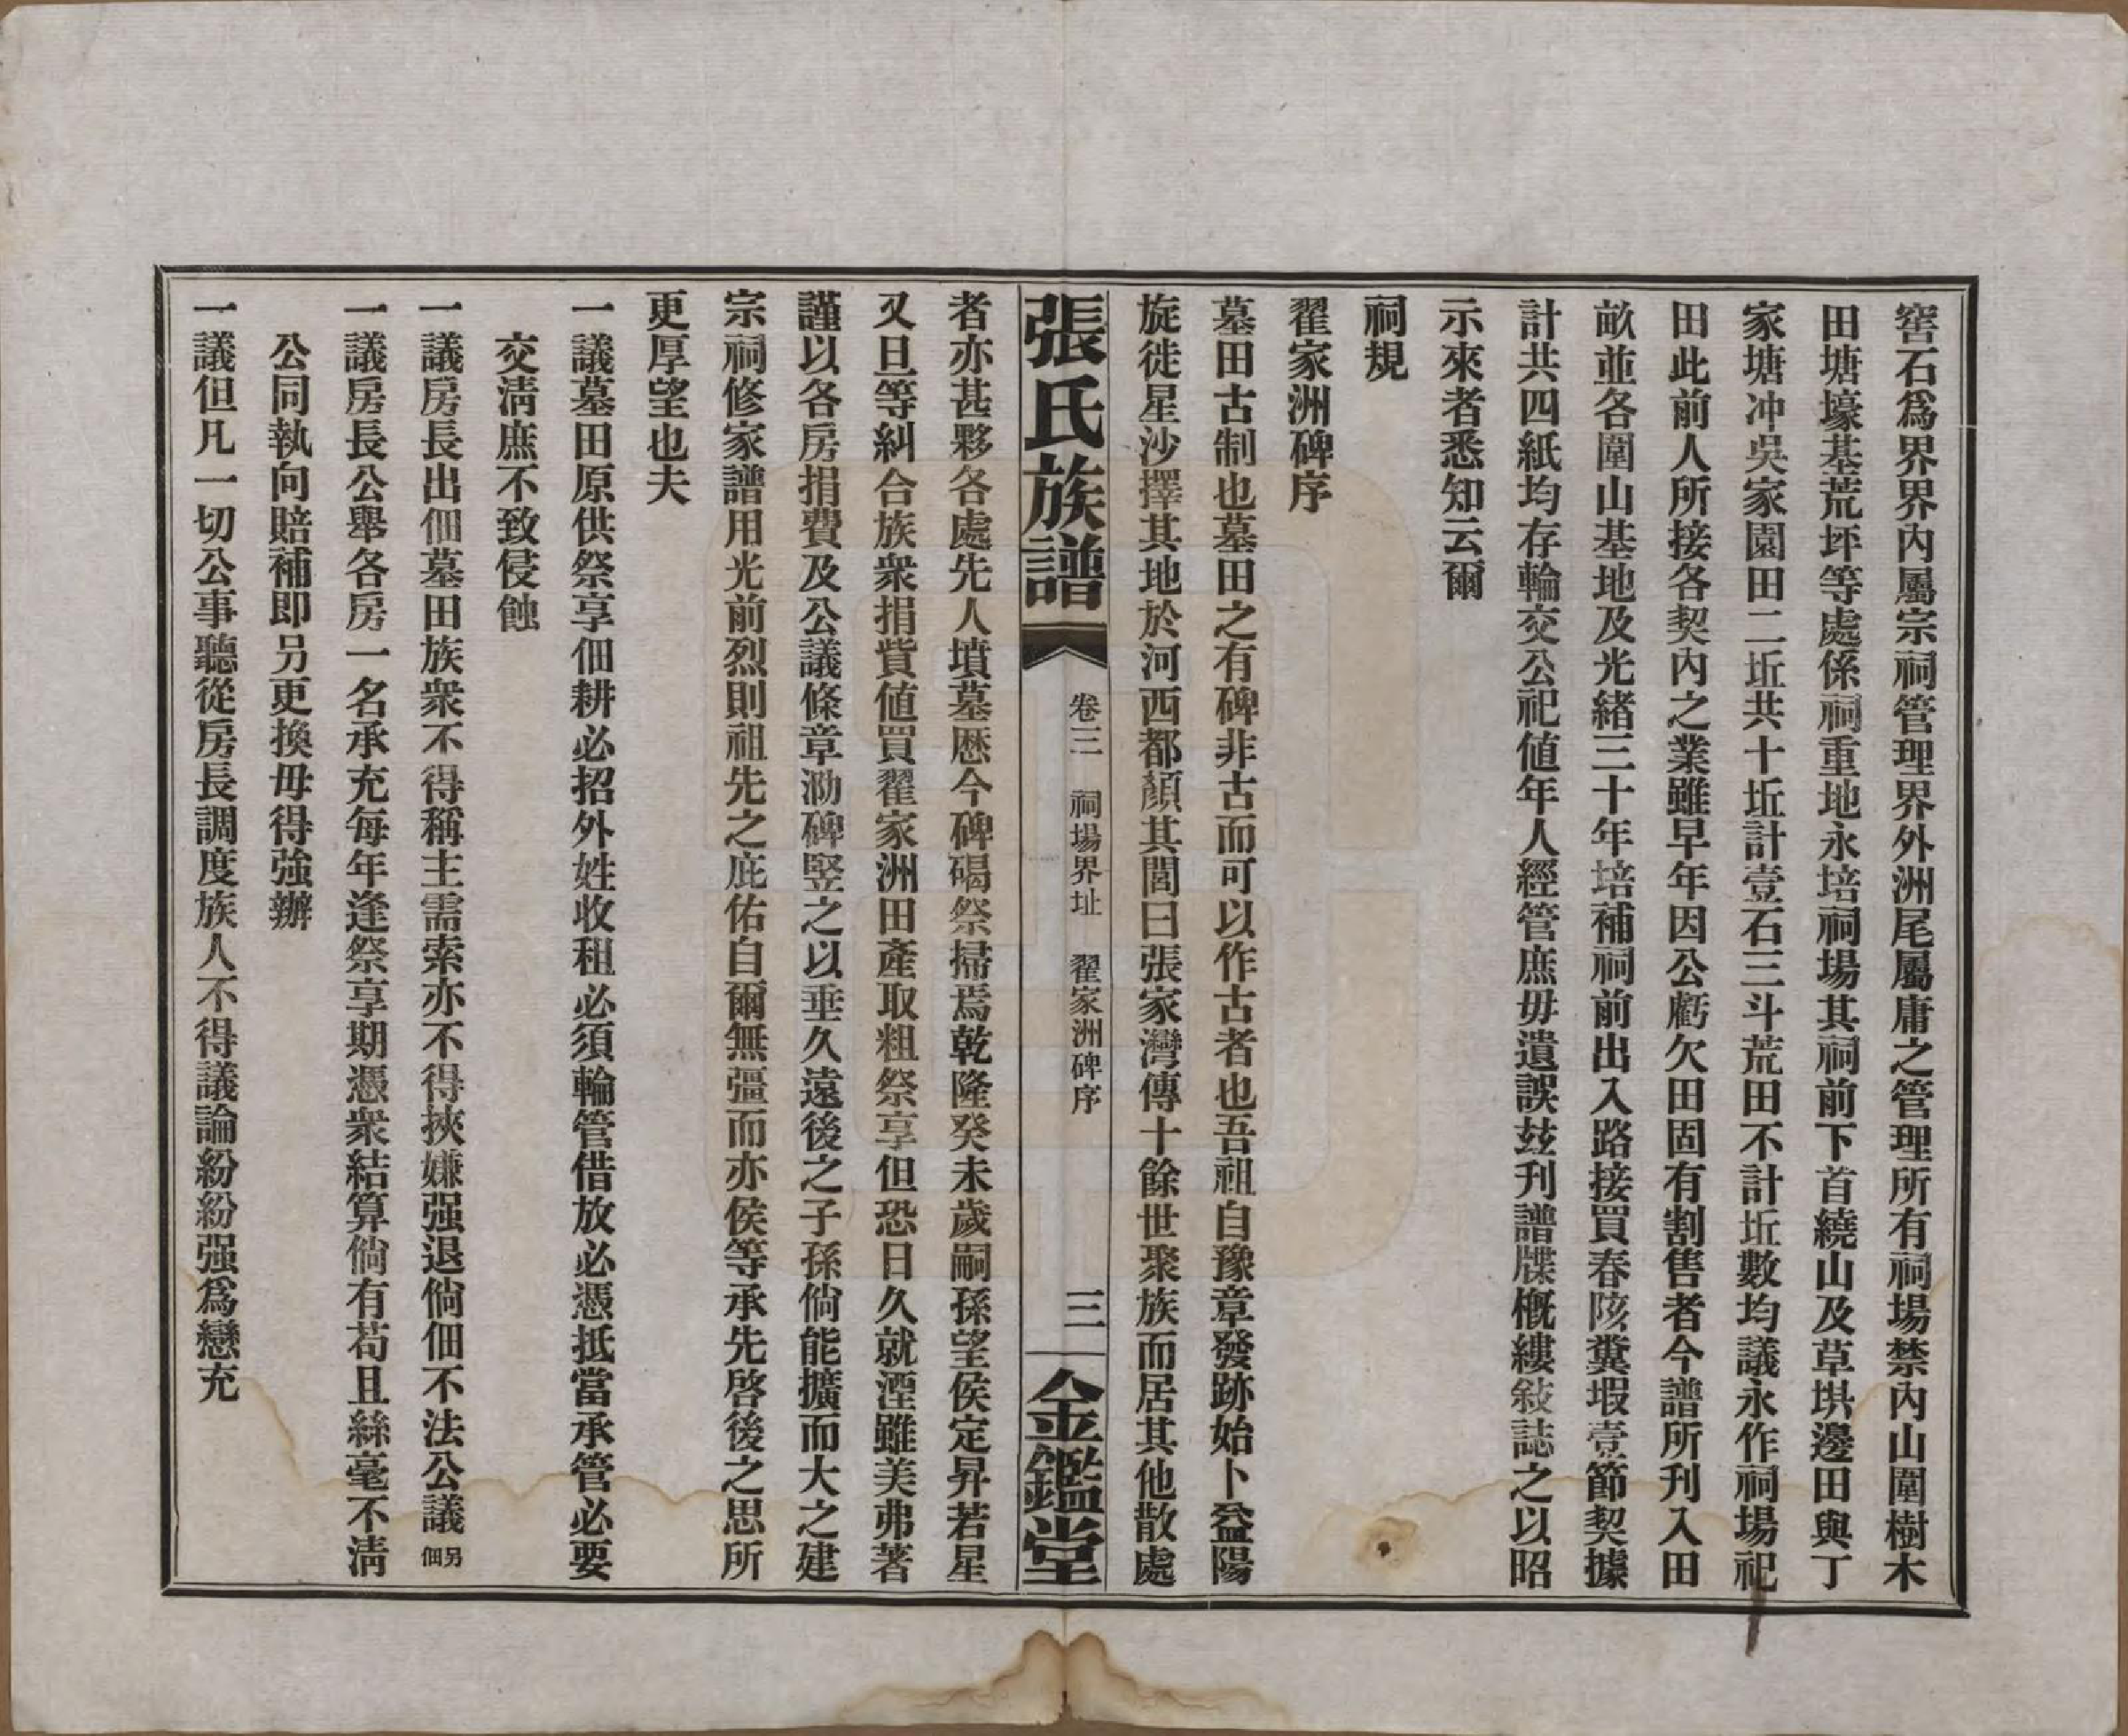 窖石爲界界內屬宗祠管理界外洲尾屬庸之管理所有祠場禁內山圍樹木
田塘壕基荒坪等處係祠重地永培祠場其祠前下首繞山及草垬邊田與丁
家塘冲吳家園田二坵共十坵計壹石三斗荒田不計坵數均議永作祠場祀
田此前人所接各契內之業雖早年因公虧欠田固有割售者今譜所刊入田
畝並各圍山基地及光緒三十年培補祠前出入路接買春陔糞塅壹節契據
計共四紙均存輪交公祀値年人經管庶毋遺誤玆刊譜牒槪縷敍誌之以昭
示來者悉知云爾
祠規
翟家洲碑序
墓田古制也墓田之有碑非古而可以作古者也吾祖自豫章發跡始卜益陽
旋徙星沙擇其地於河西都顏其閭曰張家灣傳十餘世聚族而居其他散處
張氏族譜
卷三 祠場界址 翟家洲碑序
三
金鑑堂
者亦甚夥各處先人墳墓歷今碑碣祭掃焉乾隆癸未歲嗣孫望侯定昇若星
又旦等糾合族衆捐貲値買翟家洲田產取粗祭享但恐日久就湮雖美弗著
謹以各房捐費及公議條章泐碑竪之以垂久遠後之子孫倘能擴而大之建
宗祠修家譜用光前烈則祖先之庇佑自爾無彊而亦侯等承先啓後之思所
更厚望也夫
一議墓田原供祭享佃耕必招外姓收租必須輪管借放必憑抵當承管必要
交淸庶不致侵蝕
一議房長出佃墓田族衆不得稱主需索亦不得挾嫌强退倘佃不法公議另佃
一議房長公舉各房一名承充每年逢祭享期憑衆結算倘有苟且絲毫不淸
公同執向賠補即另更換毋得強辦
一議但凡一切公事聽從房長調度族人不得議論紛紛强爲戀充